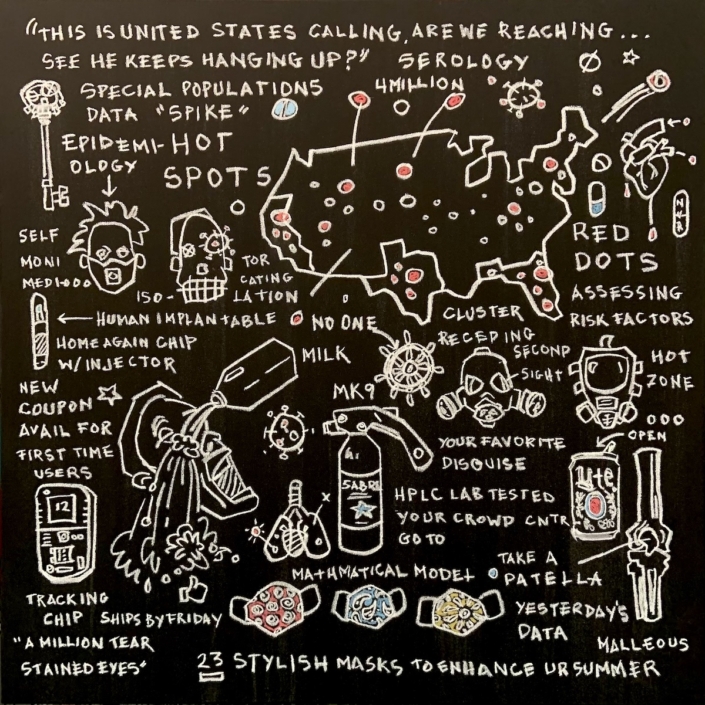 "THIS IS UNITED STATES CALLING, ARE WE REACHING...
SEE HE KEEPS HANGING UP?"
SEROLOGY
SPECIAL POPULATIONS
4 MILLION
DATA "SPIKE"
EPIDEMI-
OLOGY
HOT
SPOTS
SELF
MONI
MEDI000
TOR
CATING
ISO-
LATION
NVR
RED
DOTS
ASSESSING
RISK FACTORS
HUMAN IMPLANTABLE
HOME AGAIN CHIP
W/INJECTOR
NO ONE
MILK
CLUSTER
RECEPING
SECOND
SIGHT
HOT
ZONE
000
OPEN
NEW
COUPON
AVAIL FOR
FIRST TIME
USERS
12
MK9
SABRE
YOUR FAVORITE
DISGUISE
HPLC LAB TESTED
YOUR CROWD CNTR
GO TO
Lite
X
TAKE A
PATELLA
MATHMATICAL MODEL
TRACKING
CHIP
SHIPS BY FRIDAY
YESTERDAY'S
DATA
MALLEOUS
"A MILLION TEAR
STAINED EYES"
23 STYLISH MASKS TO ENHANCE UR SUMMER